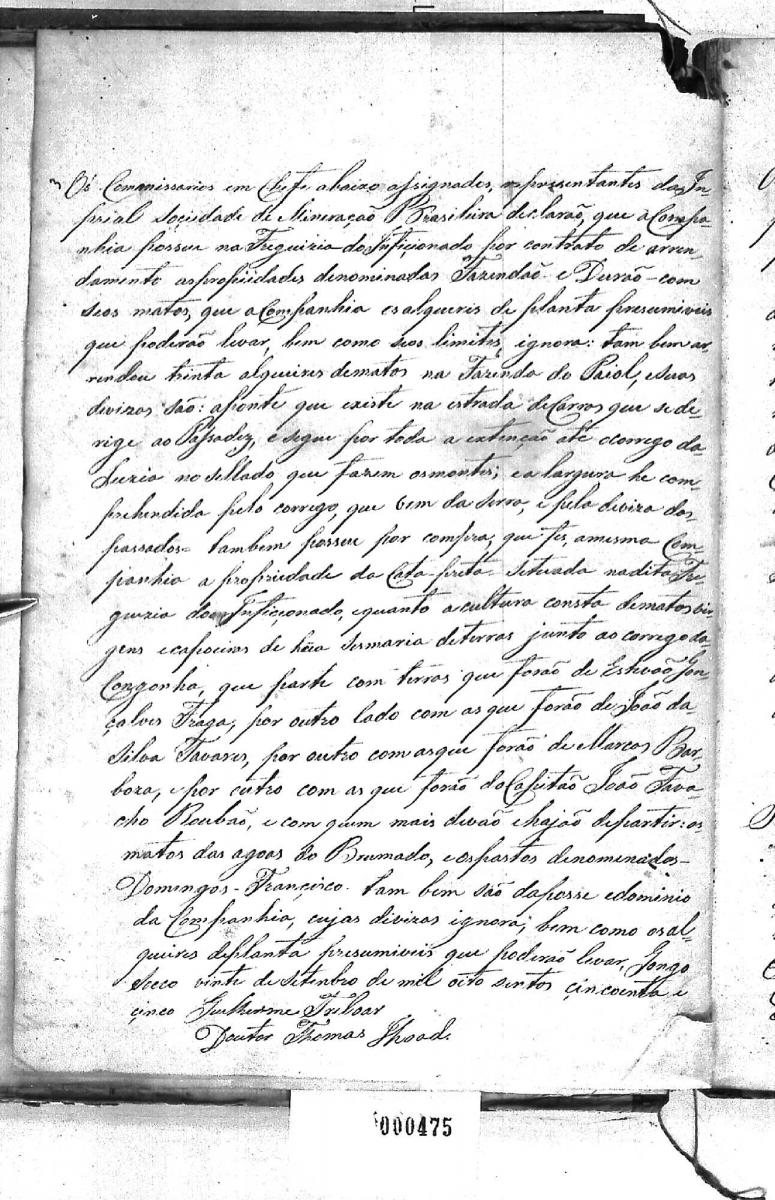 Os Commissarios em Chefe abaixo assignados, representantes da Im-
perial Sociedade de Mineração Brasileira declarão, que a Compa-
nhia possue na Freguizia do Inficionado por contrato de arren-
damento as propiedades denominadas Fazendão e Durão com
seos matos, que a Companhia e os alqueris de planta presumiveis
que poderão levar, bem como seos limites, ignora: tam bem ar-
rendou trinta alqueires de matos na Fazenda do Paiol, e suas
divizas são: a ponte que existe na estrada de Carros que se de-
rige ao Passadez, e segue por toda a extenção até o corrego da
Luzia no sellado que fazem os montes; e a largura he com-
prehendida pelo corrego, que vem da serra, e pela diviza dos
passados = tambem possue por compra, que fes, a mesma Com-
panhia a propriedade da Cata preta situada na dita Fre-
guezia do Inficionado, e quanto a cultura consta de matos vir-
gens e capoeiras de hũa sesmaria de terras junto ao corrego da
Congonha, que parte com terras que forão de Estevão Gon-
çalves Fraga, por outro lado com as que forão de João da
Silva Tavares, por outro com as que forão de Marcos Bar-
boza, e por outro com as que forão do Capitão João Fava-
cho Roubão, e com quem mais devão e hajão de partir: os
matos das agoas do Brumado, e os pastos denomenados
Domingos - Françisco. tam bem são da posse e dominio
da Companhia, cujas divizas ignora, bem como os al-
queires de planta presumiveis que poderão levar, Gongo
Seco vinte de Setenbro de mil oito sentos çincoenta e
çinco Guilherme Treloar
Doutor Thomas
000475